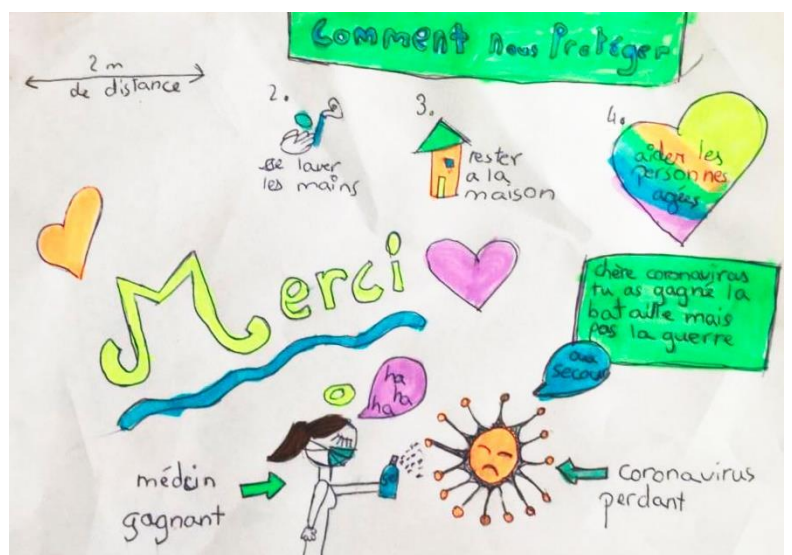 Comment nous Protéger
2 m
de distance
2.
se laver
les mains
3.
rester
a la
maison
4.
aider les
personnes
agées
Merci
chère coronavirus
tu as gagné la
bataille mais
pas la guerre
ha
ha
ha
aux
secours
médcin
gagnant
coronavirus
perdant